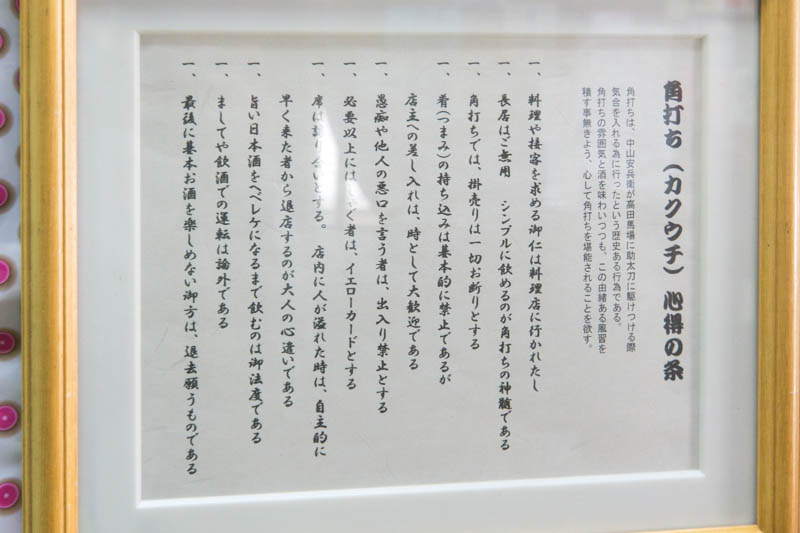 角打ち(カクウチ)心得の条
角打ちは、中山安兵衛が高田馬場に助太刀に駆けつける際
気合を入れる為に行ったという歴史ある行為である。
角打ちの雰囲気と酒を味わいつつも、この由緒ある風習を
積す事無きよう、心して角打ちを堪能されることを欲す。
一、料理や接客を求める御仁は料理店に行かれたし
一、長居はご無用 シンプルに飲めるのが角打ちの神髄である
一、角打ちでは、掛売りは一切お断りとする
一、肴(つまみ)の持ち込みは基本的に禁止であるが
店主への差し入れは、時として大歓迎である
一、愚痴や他人の悪口を言う者は、出入り禁止とする
一、必要以上にはしゃぐ者は、イエローカードとする
一、席は譲り合いとする。店内に人が溢れた時は、自主的に
早く来た者から退店するのが大人の心遣いである
一、旨い日本酒をヘベレケになるまで飲むのは御法度である
一、ましてや飲酒での運転は論外である
一、最後に基本お酒を楽しめない御方は、退去願うものである